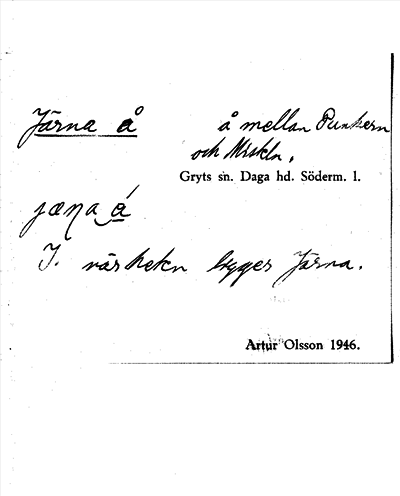 Järna å
å mellan Dunkern
och Mrskln.
Gryts sn. Daga hd. Söderm. l.
jæɳa á
I. närheten ligger Järna.
Artur Olsson 1946.